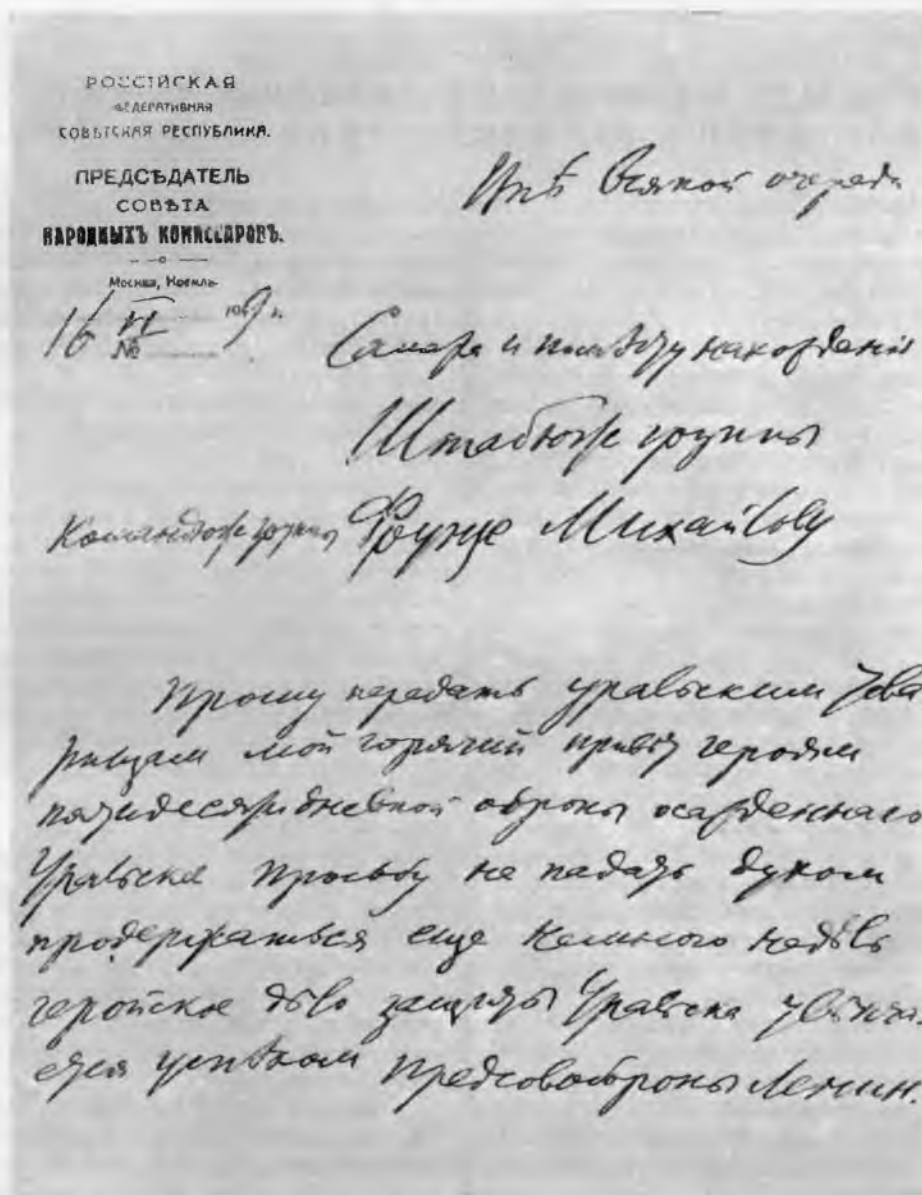 РОССІЙСКАЯ
ФЕДЕРАТИВНАЯ
СОВѢТСКАЯ РЕСПУБЛИКА.
ПРЕДСѢДАТЕЛЬ
СОВѢТА
НАРОДНЫХЪ КОМИССАРОВЪ.
Москва, Кремль
16 VI 1919 г.
№
Внѣ всякой очереди
Самара и по мѣсту нахождения
Штабюжгруппы
Командюжгруппы Фрунзе Михайлову
Прошу передать уральским това
рищам мой горячий привѣт героям
пятидесятидневной обороны осажденнаго
Уральска просьбу не падать духом
продержаться еще немного недѣль
геройское дѣло защиты Уральска увѣнча-
ется успѣхом Предсовобороны Ленин.